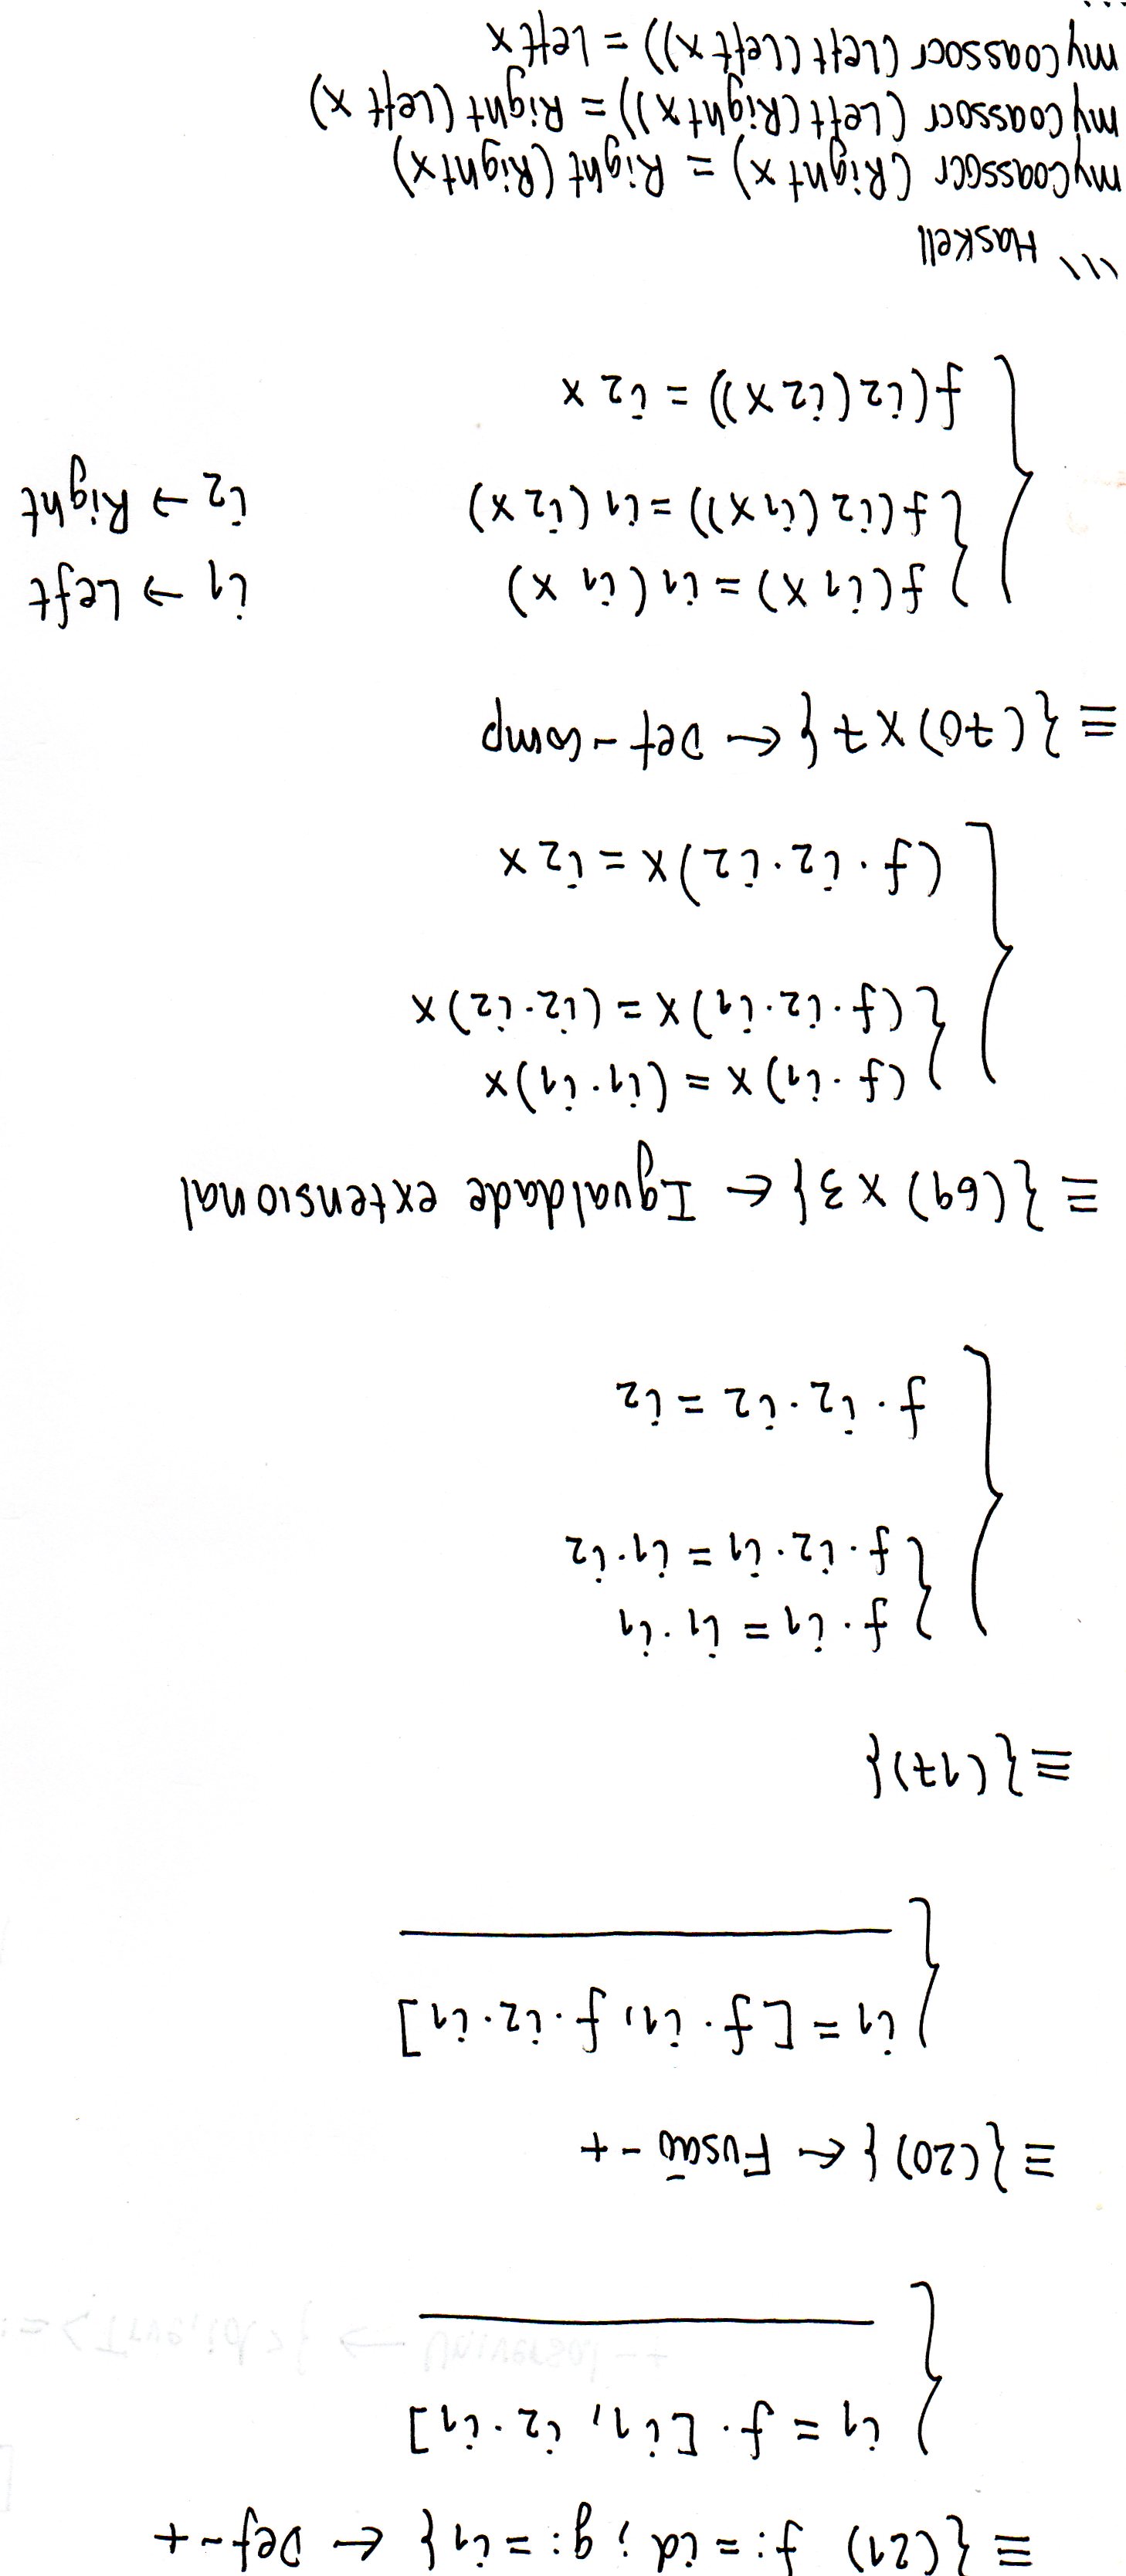 ≡ {(21) f := id ; g := i₁} ← Def-+
i₁ = f · [i₁, i₂ · i₁]
≡ {(20)} ← Fusão-+
i₁ = [f · i₁, f · i₂ · i₁]
≡ {(17)}
f · i₁ = i₁ · i₁
f · i₂ · i₁ = i₁ · i₂
f · i₂ · i₂ = i₂
≡ {(69) x 3} ← Igualdade extensional
(f · i₁) x = (i₁ · i₁) x
(f · i₂ · i₁) x = (i₂ · i₂) x
(f · i₂ · i₂) x = i₂ x
≡ {(70) x 7} ← Def-comp
f(i₁ x) = i₁ (i₁ x) i₁ → Left
f(i₂ (i₁ x)) = i₁ (i₂ x) i₂ → Right
f(i₂ (i₂ x)) = i₂ x
``` Haskell
myCoassocr (Right x) = Right (Right x)
myCoassocr (Left (Right x)) = Right (Left x)
myCoassocr (Left (Left x)) = Left x
```